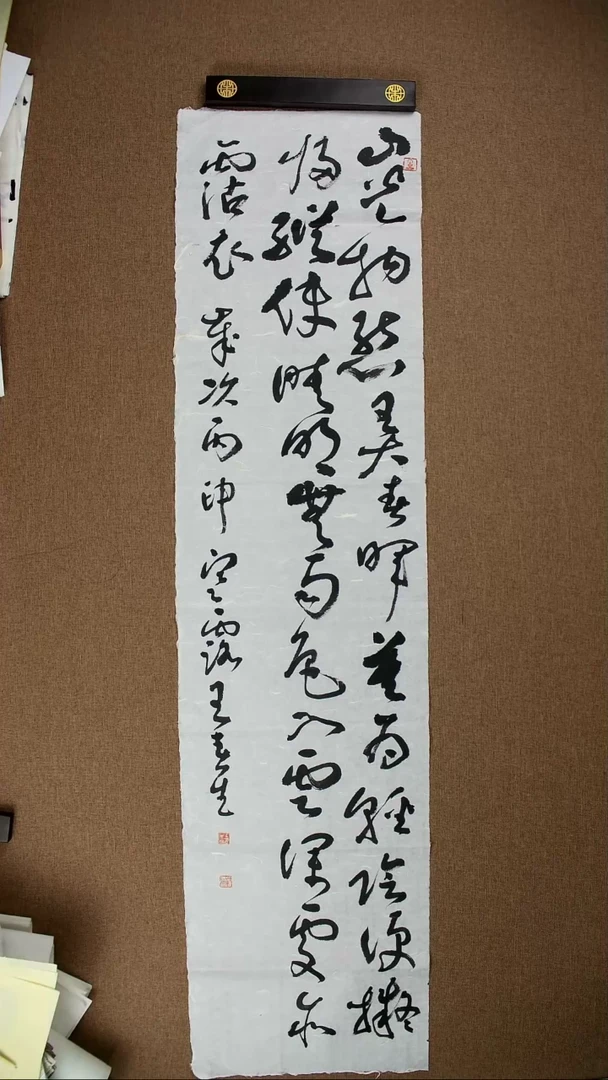 山光物態弄春暉莫為輕陰便擬
歸縱使晴明無雨色入雲深處亦
霑衣 歲次丙申寒露王生